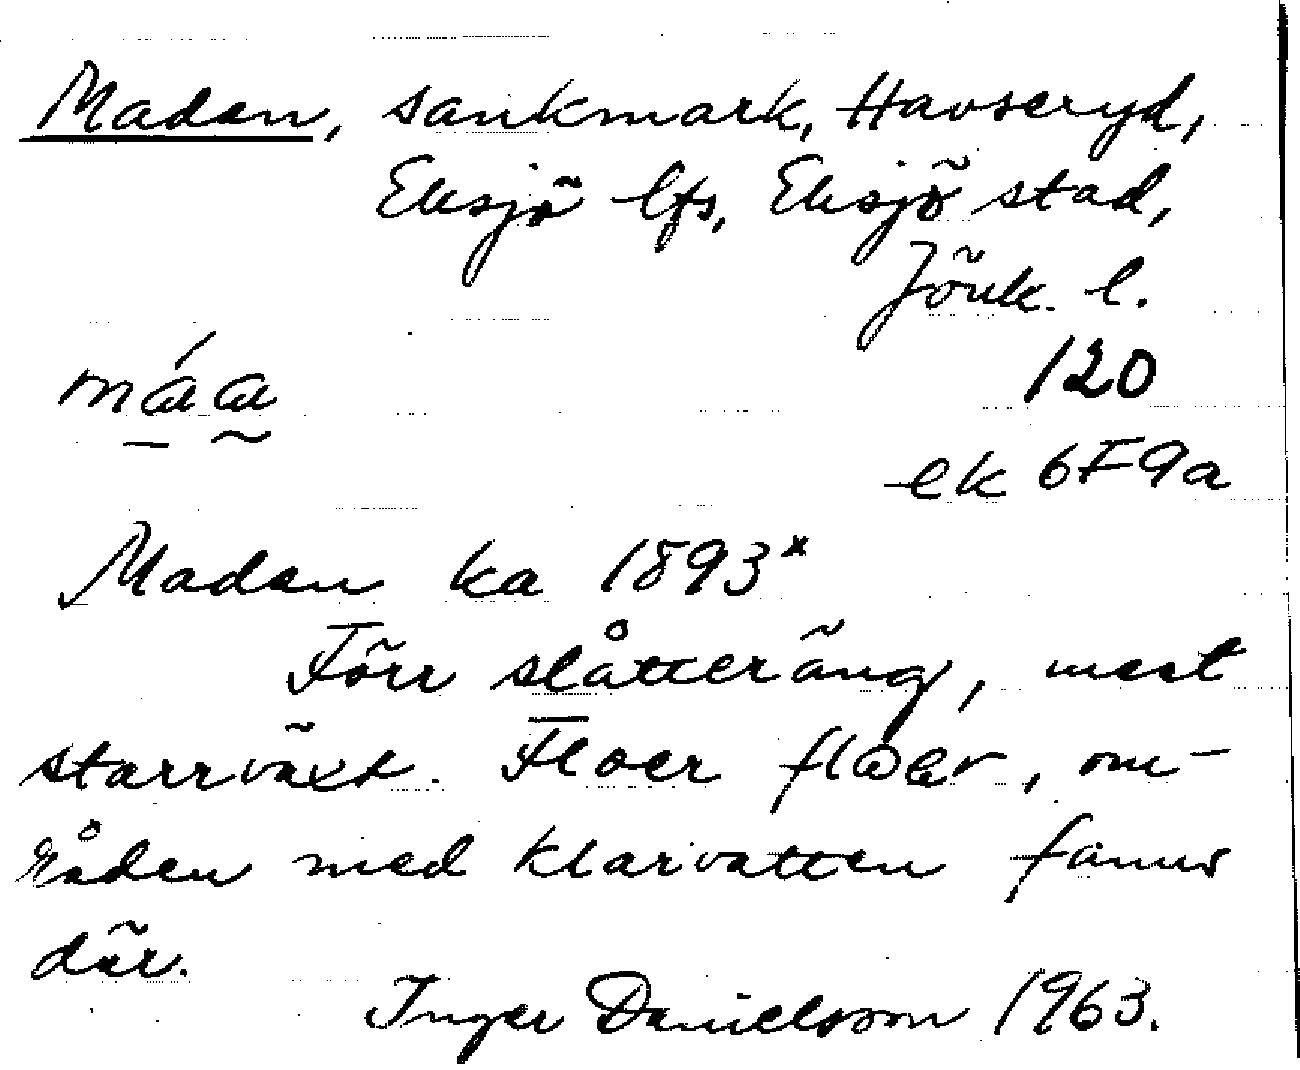 Madan, sankmark, Havseryd,
Eksjö lfs, Eksjö stad,
Jönk. l.
máa
120
ek 6F9a
Madan ka 1893*
Förr slåtteräng, mest
starrväxt. Floer flωər, om-
råden med klarvatten fanns
där.
Inger Danielsson 1963.